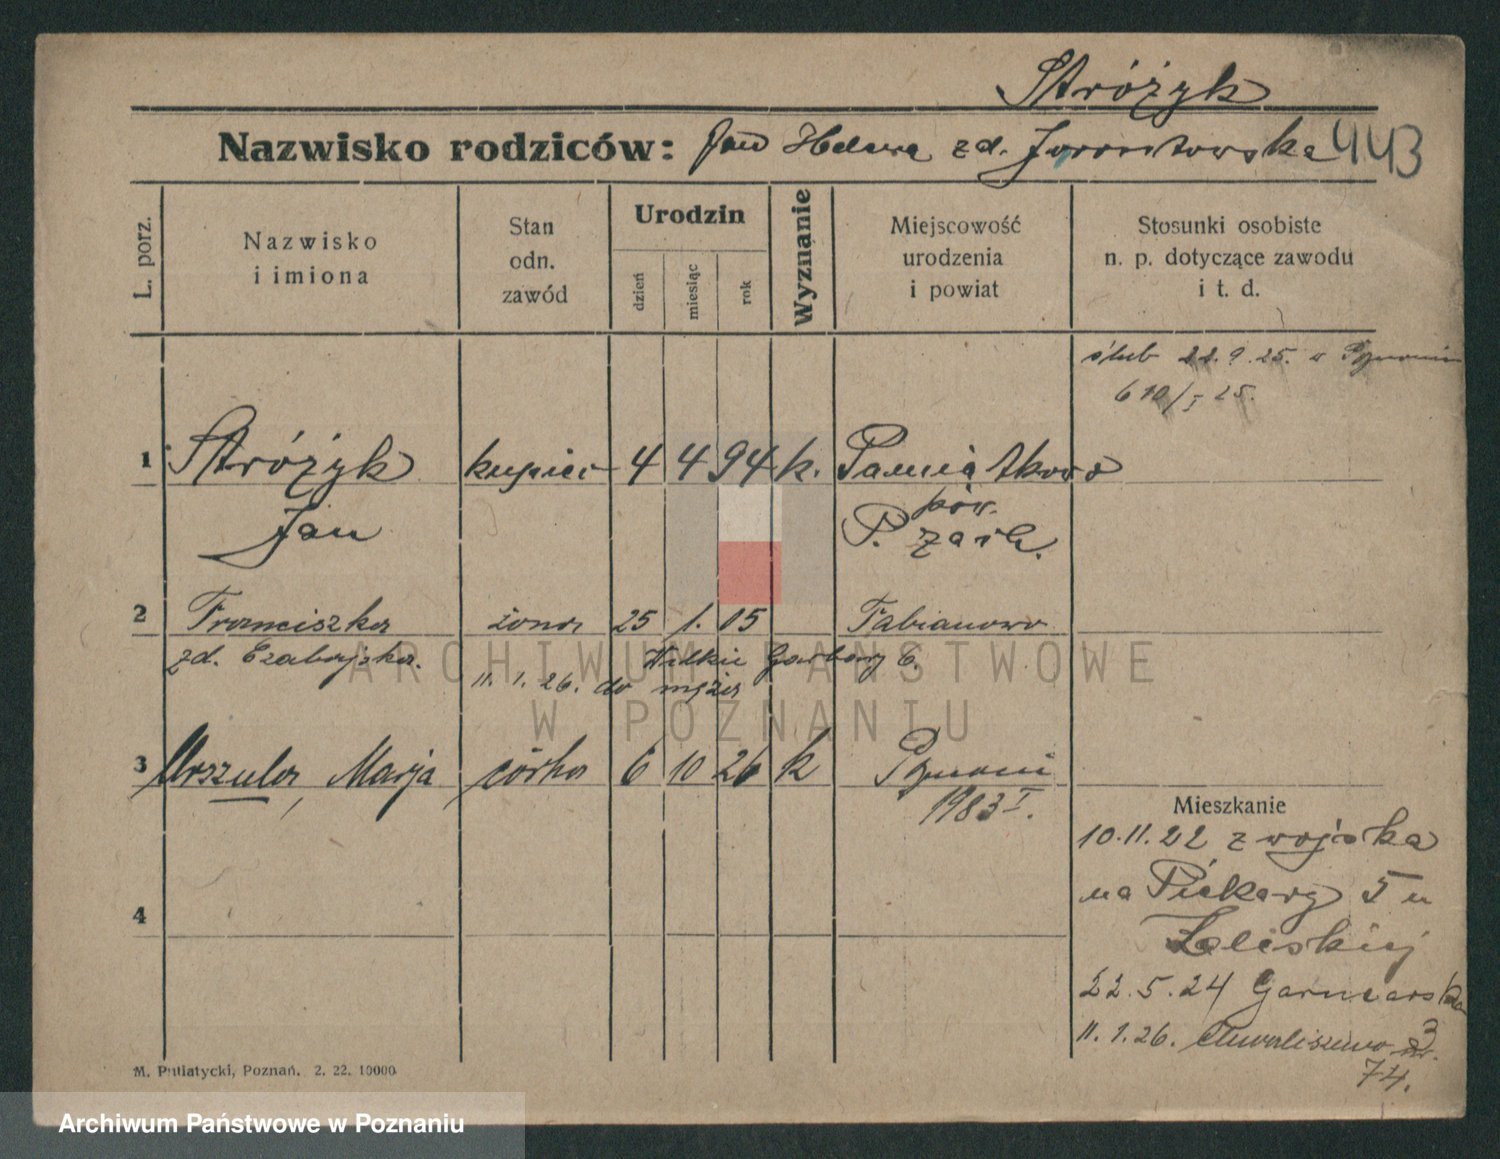 Stróżyk
Nazwisko rodziców: Jan Helena zd. 443
L. porz.
Nazwisko i imiona
Stan odn. zawód
Urodzin
dzień
miesiąc
rok
Wyznanie
Miejscowość urodzenia i powiat
Stosunki osobiste n. p. dotyczące zawodu i t. d.
ślub 22.9.25. w Poznaniu
610/I 25.
1 Stróżyk kupiec 4 4 94 k. Pamiątkowo
Jan pow.
P. zach.
2 Franciszka żona 25 1. 05 Fabianowo
zd. Czabajska. Wielkie Garbary 6.
11.1.26. do męża
3 Urszula, Marja córka 6 10 26 k Poznań
1983 I.
Mieszkanie
10.11.22 z wojska
na Piekary 5 u
Zeleskiej
4
22.5.24 Garncarska
3
11.1.26. Chwaliszewo nr.
74.
M. Putiatycki, Poznań. 2. 22. 10000
ARCHIWUM PAŃSTWOWE
W POZNANIU
Archiwum Państwowe w Poznaniu